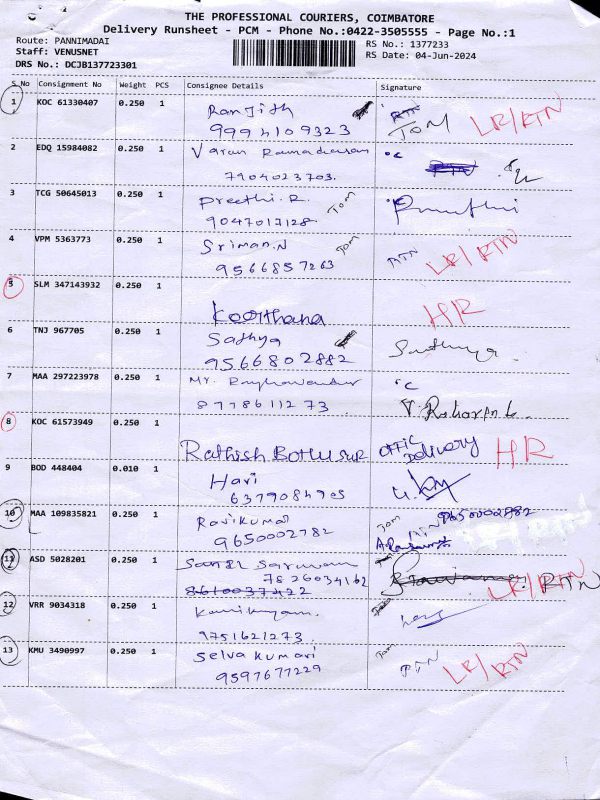 THE PROFESSIONAL COURIERS, COIMBATORE
Delivery Runsheet - PCM - Phone No.:0422-3505555 - Page No.:1
Route: PANNIMADAI
Staff: VENUSNET
DRS No.: DCJB137723301
RS No.: 1377233
RS Date: 04-Jun-2024
S No Consignment No Weight PCS Consignee Details Signature
1 KOC 61330407 0.250 1 Ranjith RTN
TOM LR/RTN
2 EDQ 15984082 0.250 1 Varan °C
7904023703.
3 TCG 50645013 0.250 1 Preethi.R. Tom
9047017128
4 VPM 5363773 0.250 1 Sriman.N Tom RTN LR/RTN
9566857263
5 SLM 347143932 0.250 1 HR
Keerthana
6 TNJ 967705 0.250 1 Sathya Sathya
9566802882
7 MAA 297223978 0.250 1 Mr. °C
8778611273
8 KOC 61573949 0.250 1 HR
Rathish OFFIC DELIVERY
9 BOD 448404 0.010 1 Hari
10 MAA 109835821 0.250 1 Ravikumar Tom RTN 9650002782
9650002782
11 ASD 5028201 0.250 1 LR/RTN RTN
7826034162
8610037422
12 VRR 9034318 0.250 1
9751621273
13 KMU 3490997 0.250 1 Selvakumari Tom RTN LR/RTN
9597677229